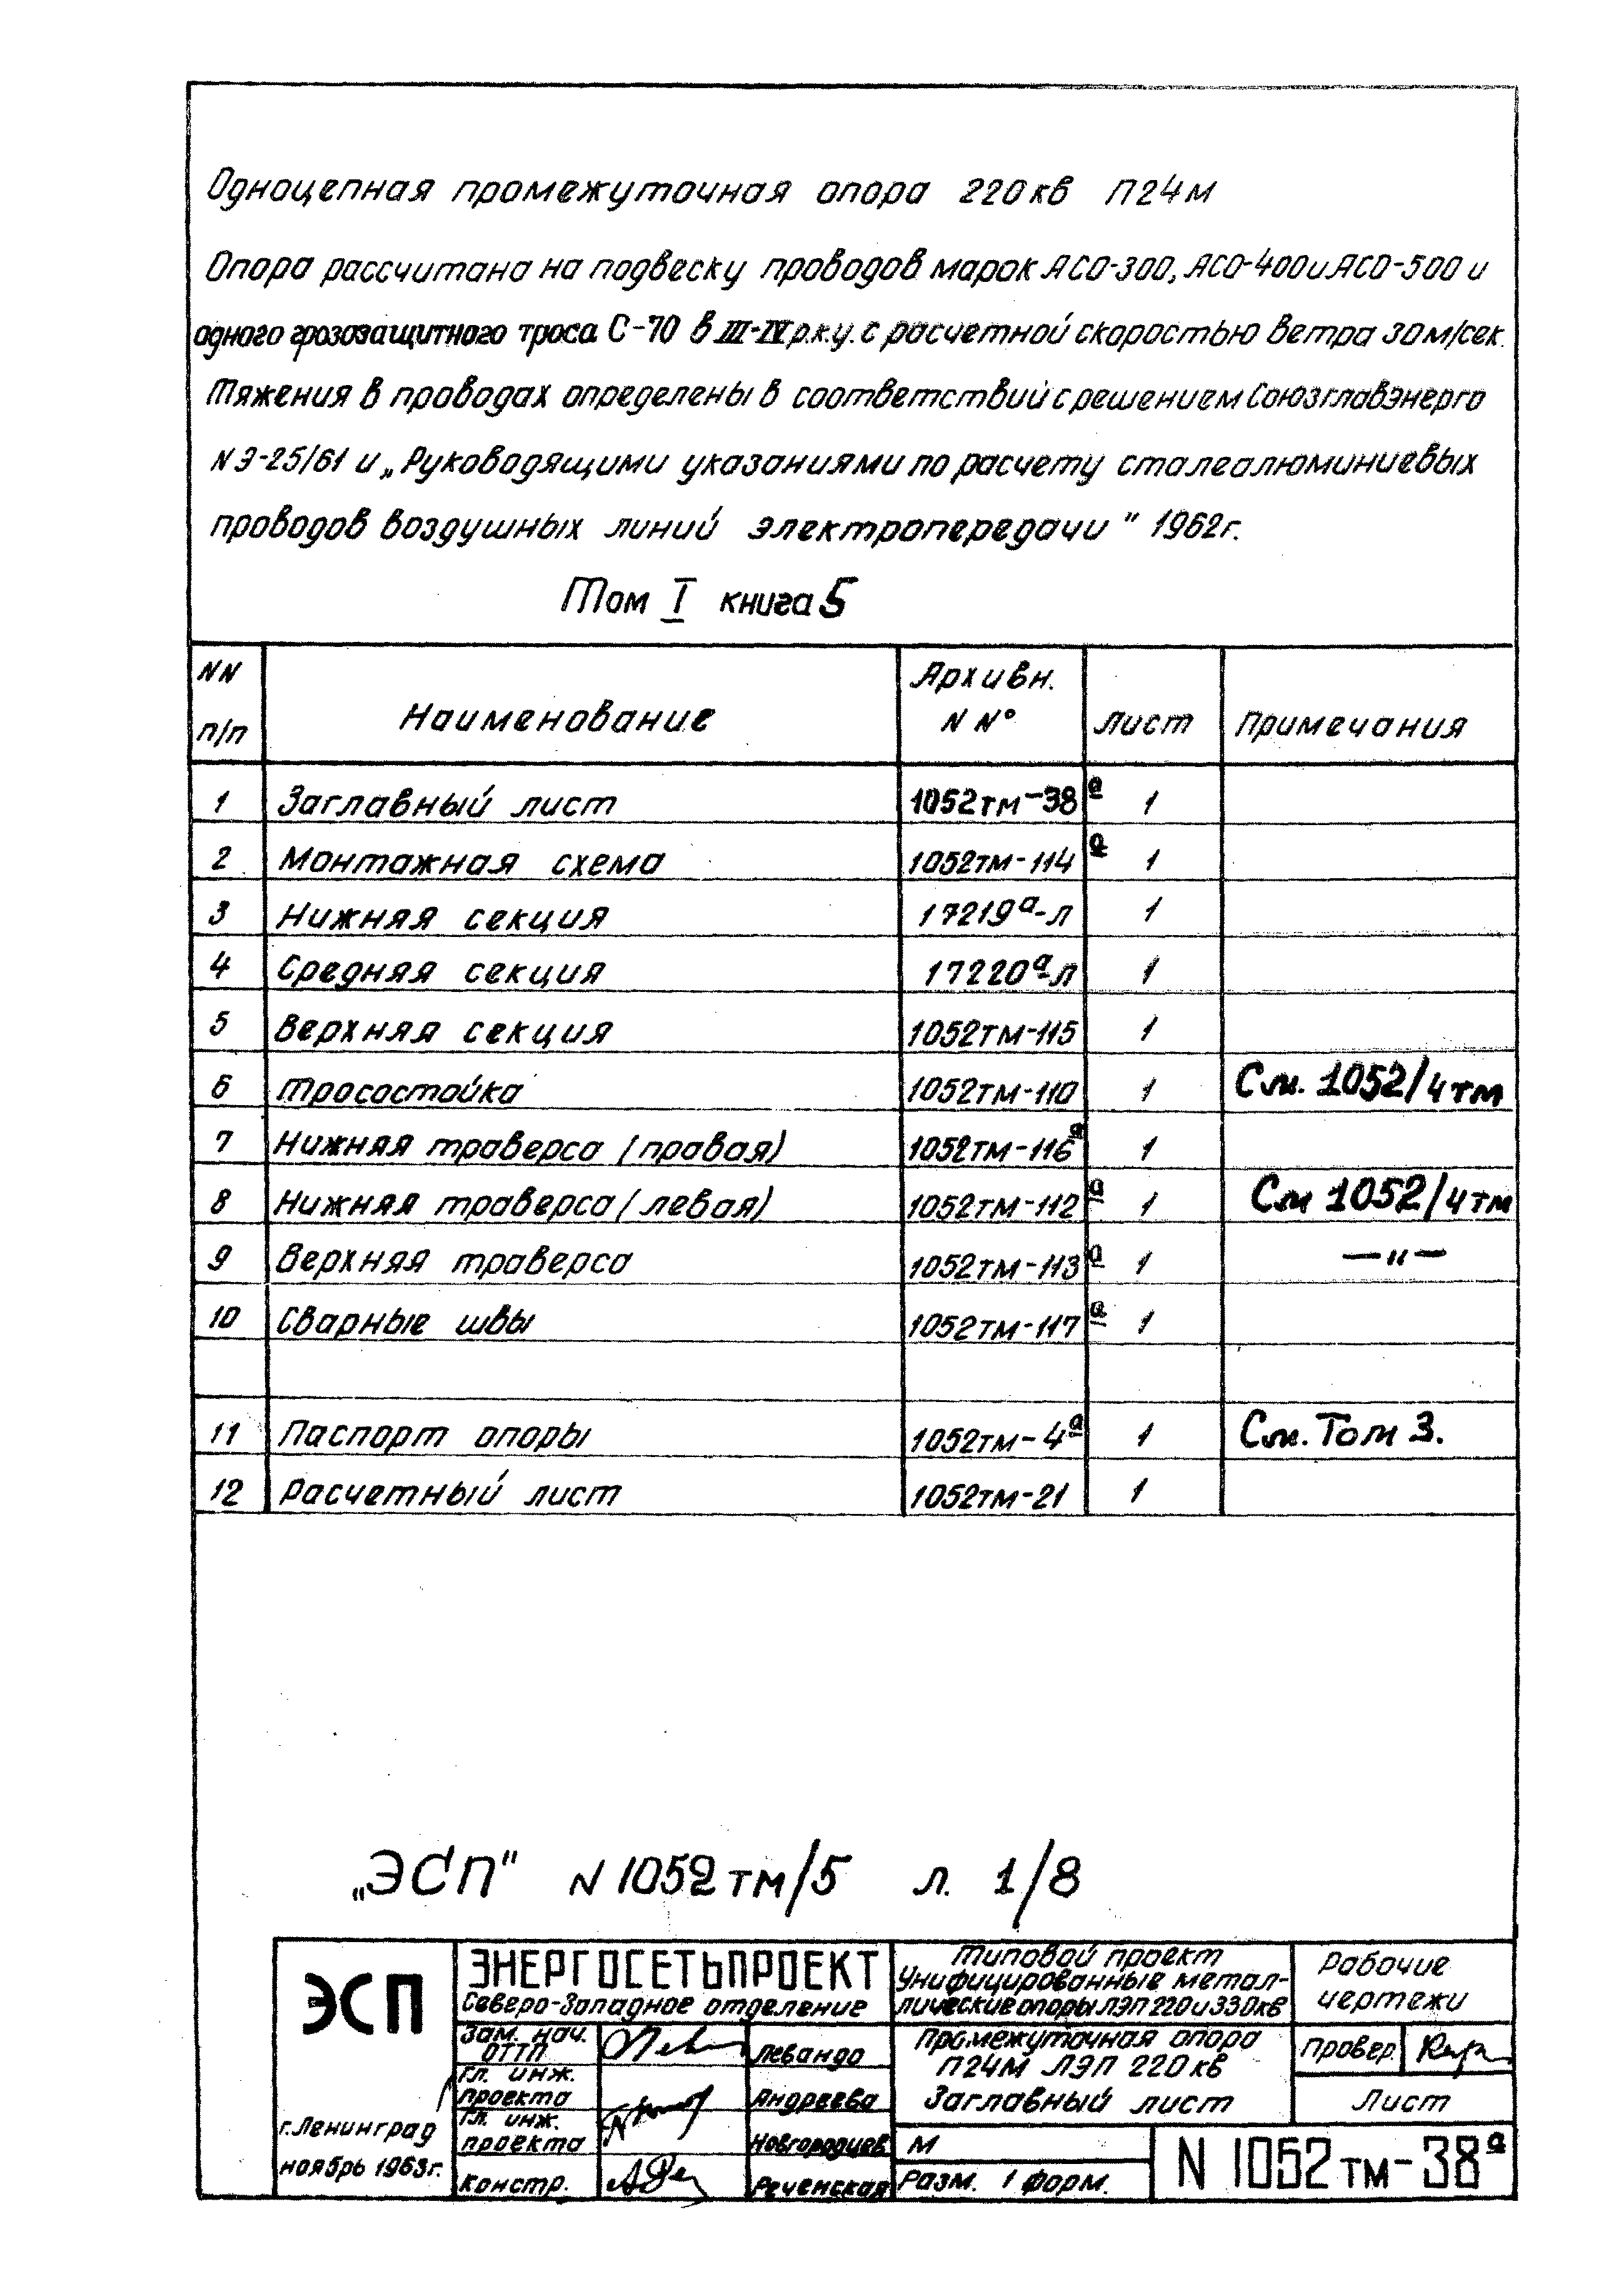 Одноцепная промежуточная опора 220кв П24м
Опора рассчитана на подвеску проводов марок АСО-300, АСО-400 и АСО-500 и
одного грозозащитного троса С-70 в III-IV р.к.у. с расчетной скоростью ветра 30м/сек.
Тяжения в проводах определены в соответствий с решением Союзглавэнерго
N Э-25/61 и „Руководящими указаниями по расчету сталеалюминиевых
проводов воздушных линий электропередачи" 1962г.
Том I книга 5
NN п/п Наименование Архивн. N N° Лист Примечания
1 Заглавный лист 1052тм-38а 1
2 Монтажная схема 1052тм-114а 1
3 Нижняя секция 17219а-л 1
4 Средняя секция 17220а-л 1
5 Верхняя секция 1052тм-115 1
6 Тросостойка 1052тм-110 1 См. 1052/4тм
7 Нижняя траверса (правая) 1052тм-116а 1
8 Нижняя траверса (левая) 1052тм-112а 1 См 1052/4тм
9 Верхняя траверса 1052тм-113а 1 —"—
10 Сварные швы 1052тм-117а 1
11 Паспорт опоры 1052тм-4а 1 См. Том 3.
12 Расчетный лист 1052тм-21 1
„ЭСП" N 1052тм/5 л. 1/8
ЭСП
г. Ленинград
ноябрь 1963г.
ЭНЕРГОСЕТЬПРОЕКТ
Северо-Западное отделение
Зам. нач. ОТТП Левандо
Гл. инж. проекта Андреева
Гл. инж. проекта Новгородцев
Констр. Реченская
Типовой проект
Унифицированные метал-
лические опоры ЛЭП 220 и 330кв
Промежуточная опора
П24М ЛЭП 220кв
Заглавный лист
М
Разм. 1 форм.
Рабочие
чертежи
Провер.
Лист
N 1052тм-38а